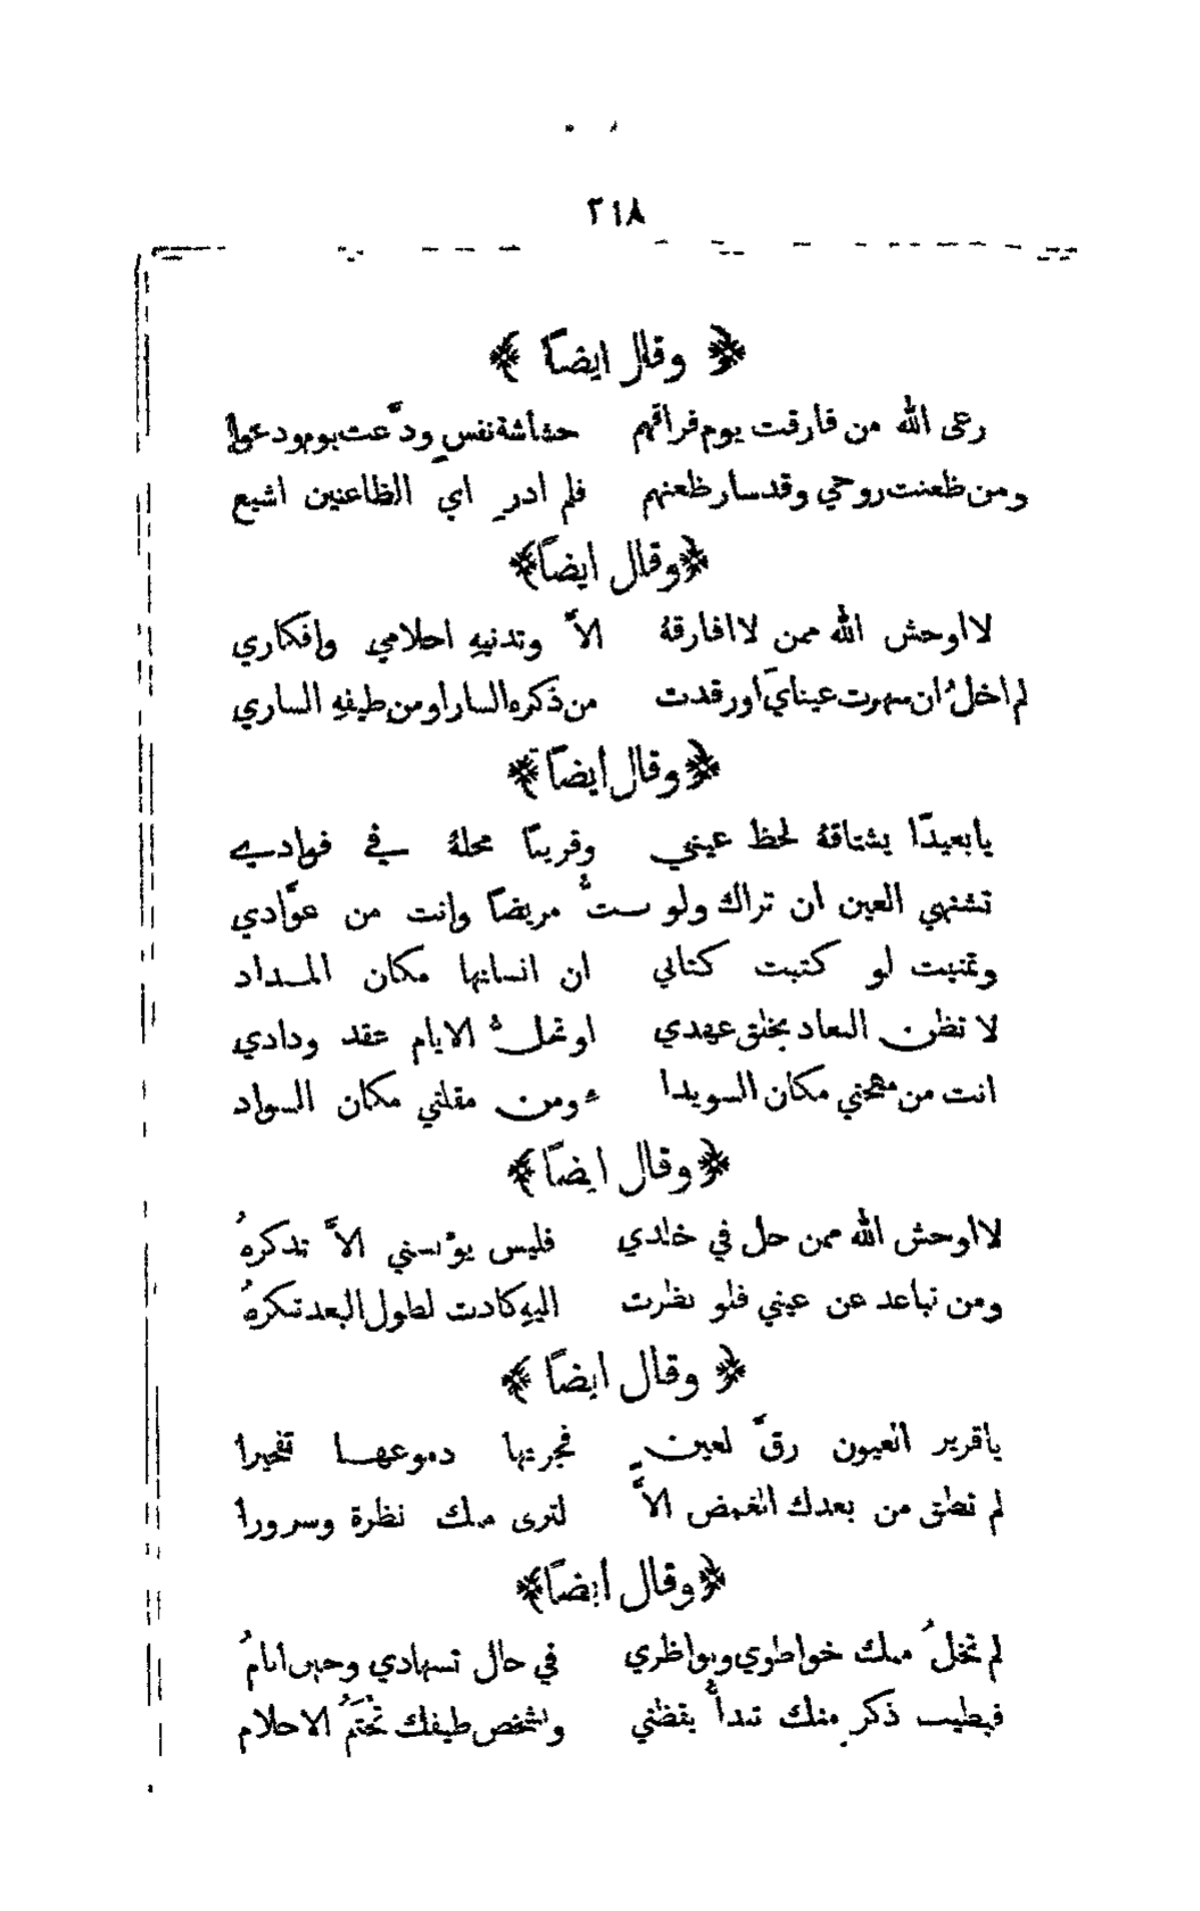 ٢١٨
﴿ وقال ايضاً ﴾
رعى الله من فارقت يوم فراقهم حشاشة نفسٍ ودَّعت يوم ودعوا
ومن ظعنت روحي وقد سار ظعنهم فلم ادرِ ايَّ الظاعنين اشيع
﴿وقال ايضاً﴾
لا اوحش الله ممن لا افارقهُ الاَّ وتدنيهِ احلامي وافكاري
لم اخلُ ان سهرت عينايَ او رقدت من ذكره السار او من طيفهِ الساري
﴿وقال ايضاً﴾
يابعيدًا يشتاقهُ لحظ عيني وقريباً محلهُ في فوادي
تشتهي العين ان تراك ولو ستُ مريضاً وانت من عوَّادي
وتمنيت لو كتبت كتابي ان انسانها مكان المداد
لا تظن البعاد يخلق عهدي او تملُّ الايام عقد ودادي
انت من مهجتي مكان السويدا ء ومن مقلتي مكان السواد
﴿وقال ايضاً﴾
لا اوحش الله ممن حل في خلدي فليس يؤنسني الاَّ تذكرهُ
ومن تباعد عن عيني فلو نظرت اليهِ كادت لطول البعد تنكرهُ
﴿ وقال ايضاً ﴾
ياقرير العيون رقَّ لعينٍ فجرتها دموعها تفجيرا
لم تطق من بعدك الغمض الاَّ لترى منك نظرة وسرورا
﴿وقال ايضاً﴾
لم تخلُ منك خواطري ونواظري في حال تسهادي وحين انامُ
فبطيب ذكرٍ منك تبدأُ يقظتي وبشخص طيفك تُختَمُ الاحلام